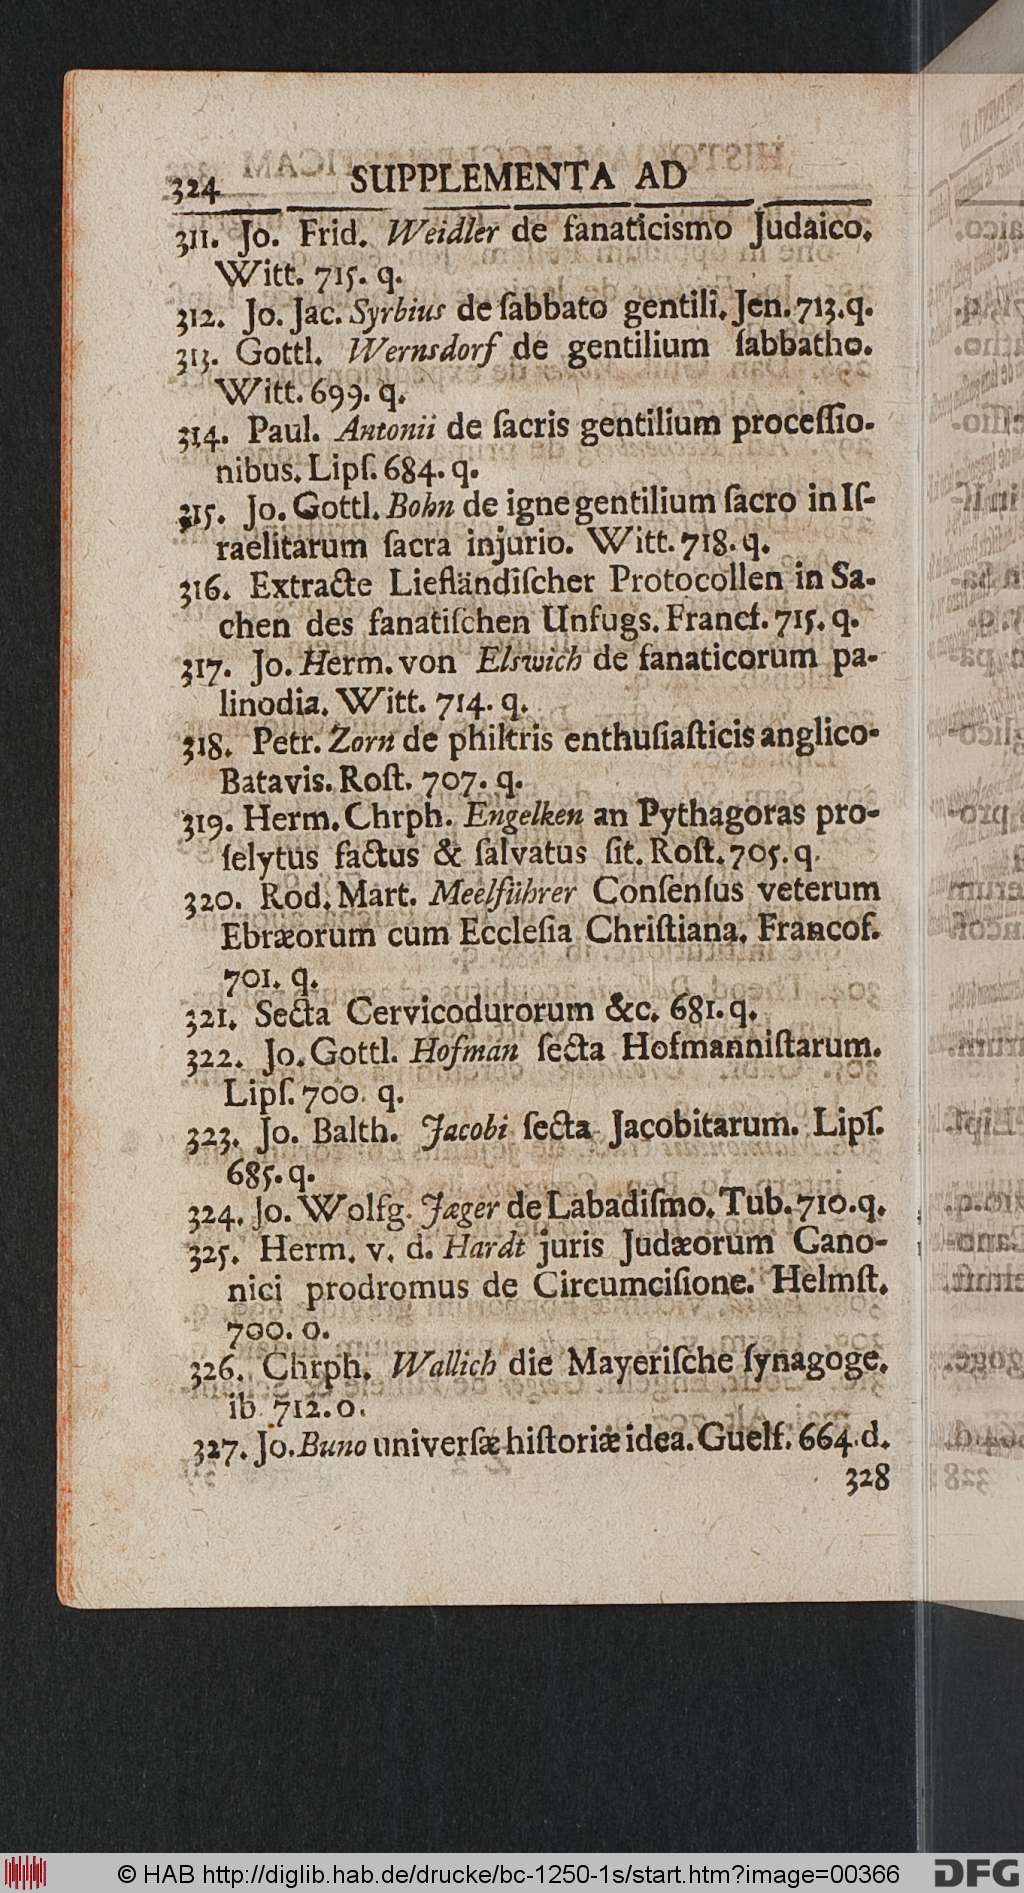 324 SUPPLEMENTA AD
311. Jo. Frid. Weidler de fanaticismo Judaico.
Witt. 715. q.
312. Jo. Jac. Syrbius de ſabbato gentili. Jen. 713. q.
313. Gottl. Wernsdorf de gentilium ſabbatho.
Witt. 699. q.
314. Paul. Antonii de ſacris gentilium proceſſio-
nibus. Lipſ. 684. q.
315. Jo. Gottl. Bohn de igne gentilium ſacro in Iſ-
raelitarum ſacra injurio. Witt. 718. q.
316. Extracte Liefländiſcher Protocollen in Sa-
chen des fanatiſchen Unfugs. Francf. 715. q.
317. Jo. Herm. von Elswich de fanaticorum pa-
linodia. Witt. 714. q.
318. Petr. Zorn de philtris enthuſiaſticis anglico-
Batavis. Roſt. 707. q.
319. Herm. Chrph. Engelken an Pythagoras pro-
ſelytus factus & ſalvatus ſit. Roſt. 705. q.
320. Rod. Mart. Meelführer Conſenſus veterum
Ebræorum cum Eccleſia Chriſtiana. Francof.
701. q.
321. Secta Cervicodurorum &c. 681. q.
322. Jo. Gottl. Hofman ſecta Hofmanniſtarum.
Lipſ. 700. q.
323. Jo. Balth. Jacobi ſecta Jacobitarum. Lipſ.
685. q.
324. Jo. Wolfg. Jæger de Labadiſmo. Tub. 710. q.
325. Herm. v. d. Hardt juris Judæorum Cano-
nici prodromus de Circumciſione. Helmſt.
700. o.
326. Chrph. Wallich die Mayeriſche ſynagoge.
ib. 712. o.
327. Jo. Buno univerſæ hiſtoriæ idea. Guelf. 664. d.
328
© HAB http://diglib.hab.de/drucke/bc-1250-1s/start.htm?image=00366
DFG